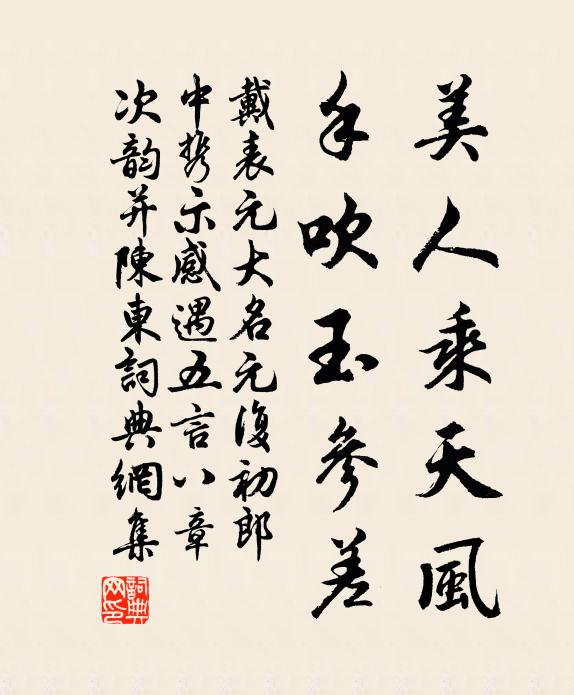 美人乘天風
手吹玉參差
戴表元大名元復初郎
中攜示感遇五言八章
次韵并陳東詞典網集
詞典网印